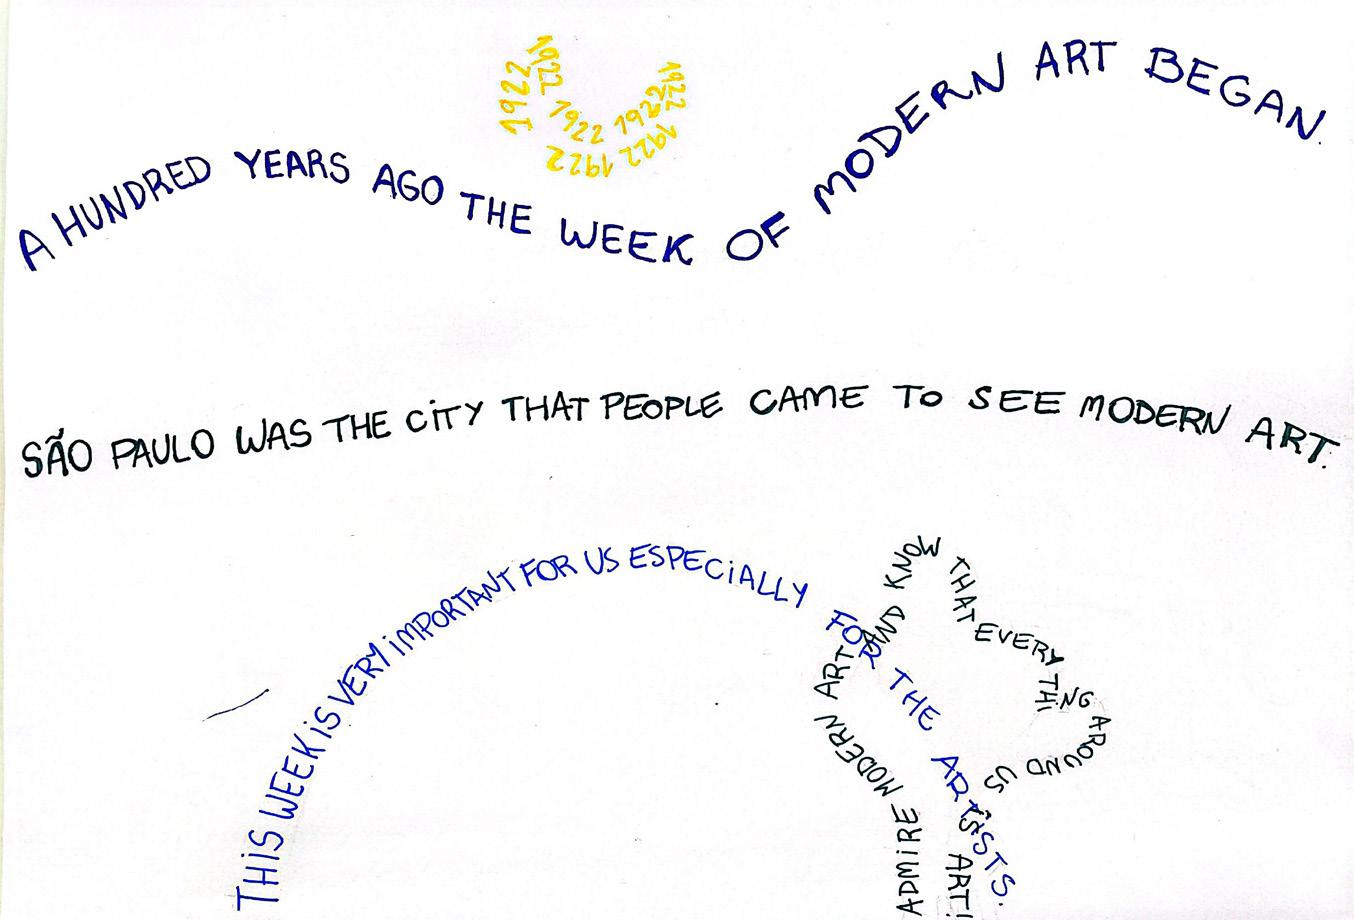 1922 1922 1922 1922 1922 1922 1922 1922
A HUNDRED YEARS AGO THE WEEK OF MODERN ART BEGAN.
SÃO PAULO WAS THE CITY THAT PEOPLE CAME TO SEE MODERN ART.
THIS WEEK IS VERY IMPORTANT FOR US ESPECIALLY FOR THE ARTISTS.
ADMIRE MODERN ART AND KNOW THAT EVERYTHING AROUND US IS ART!